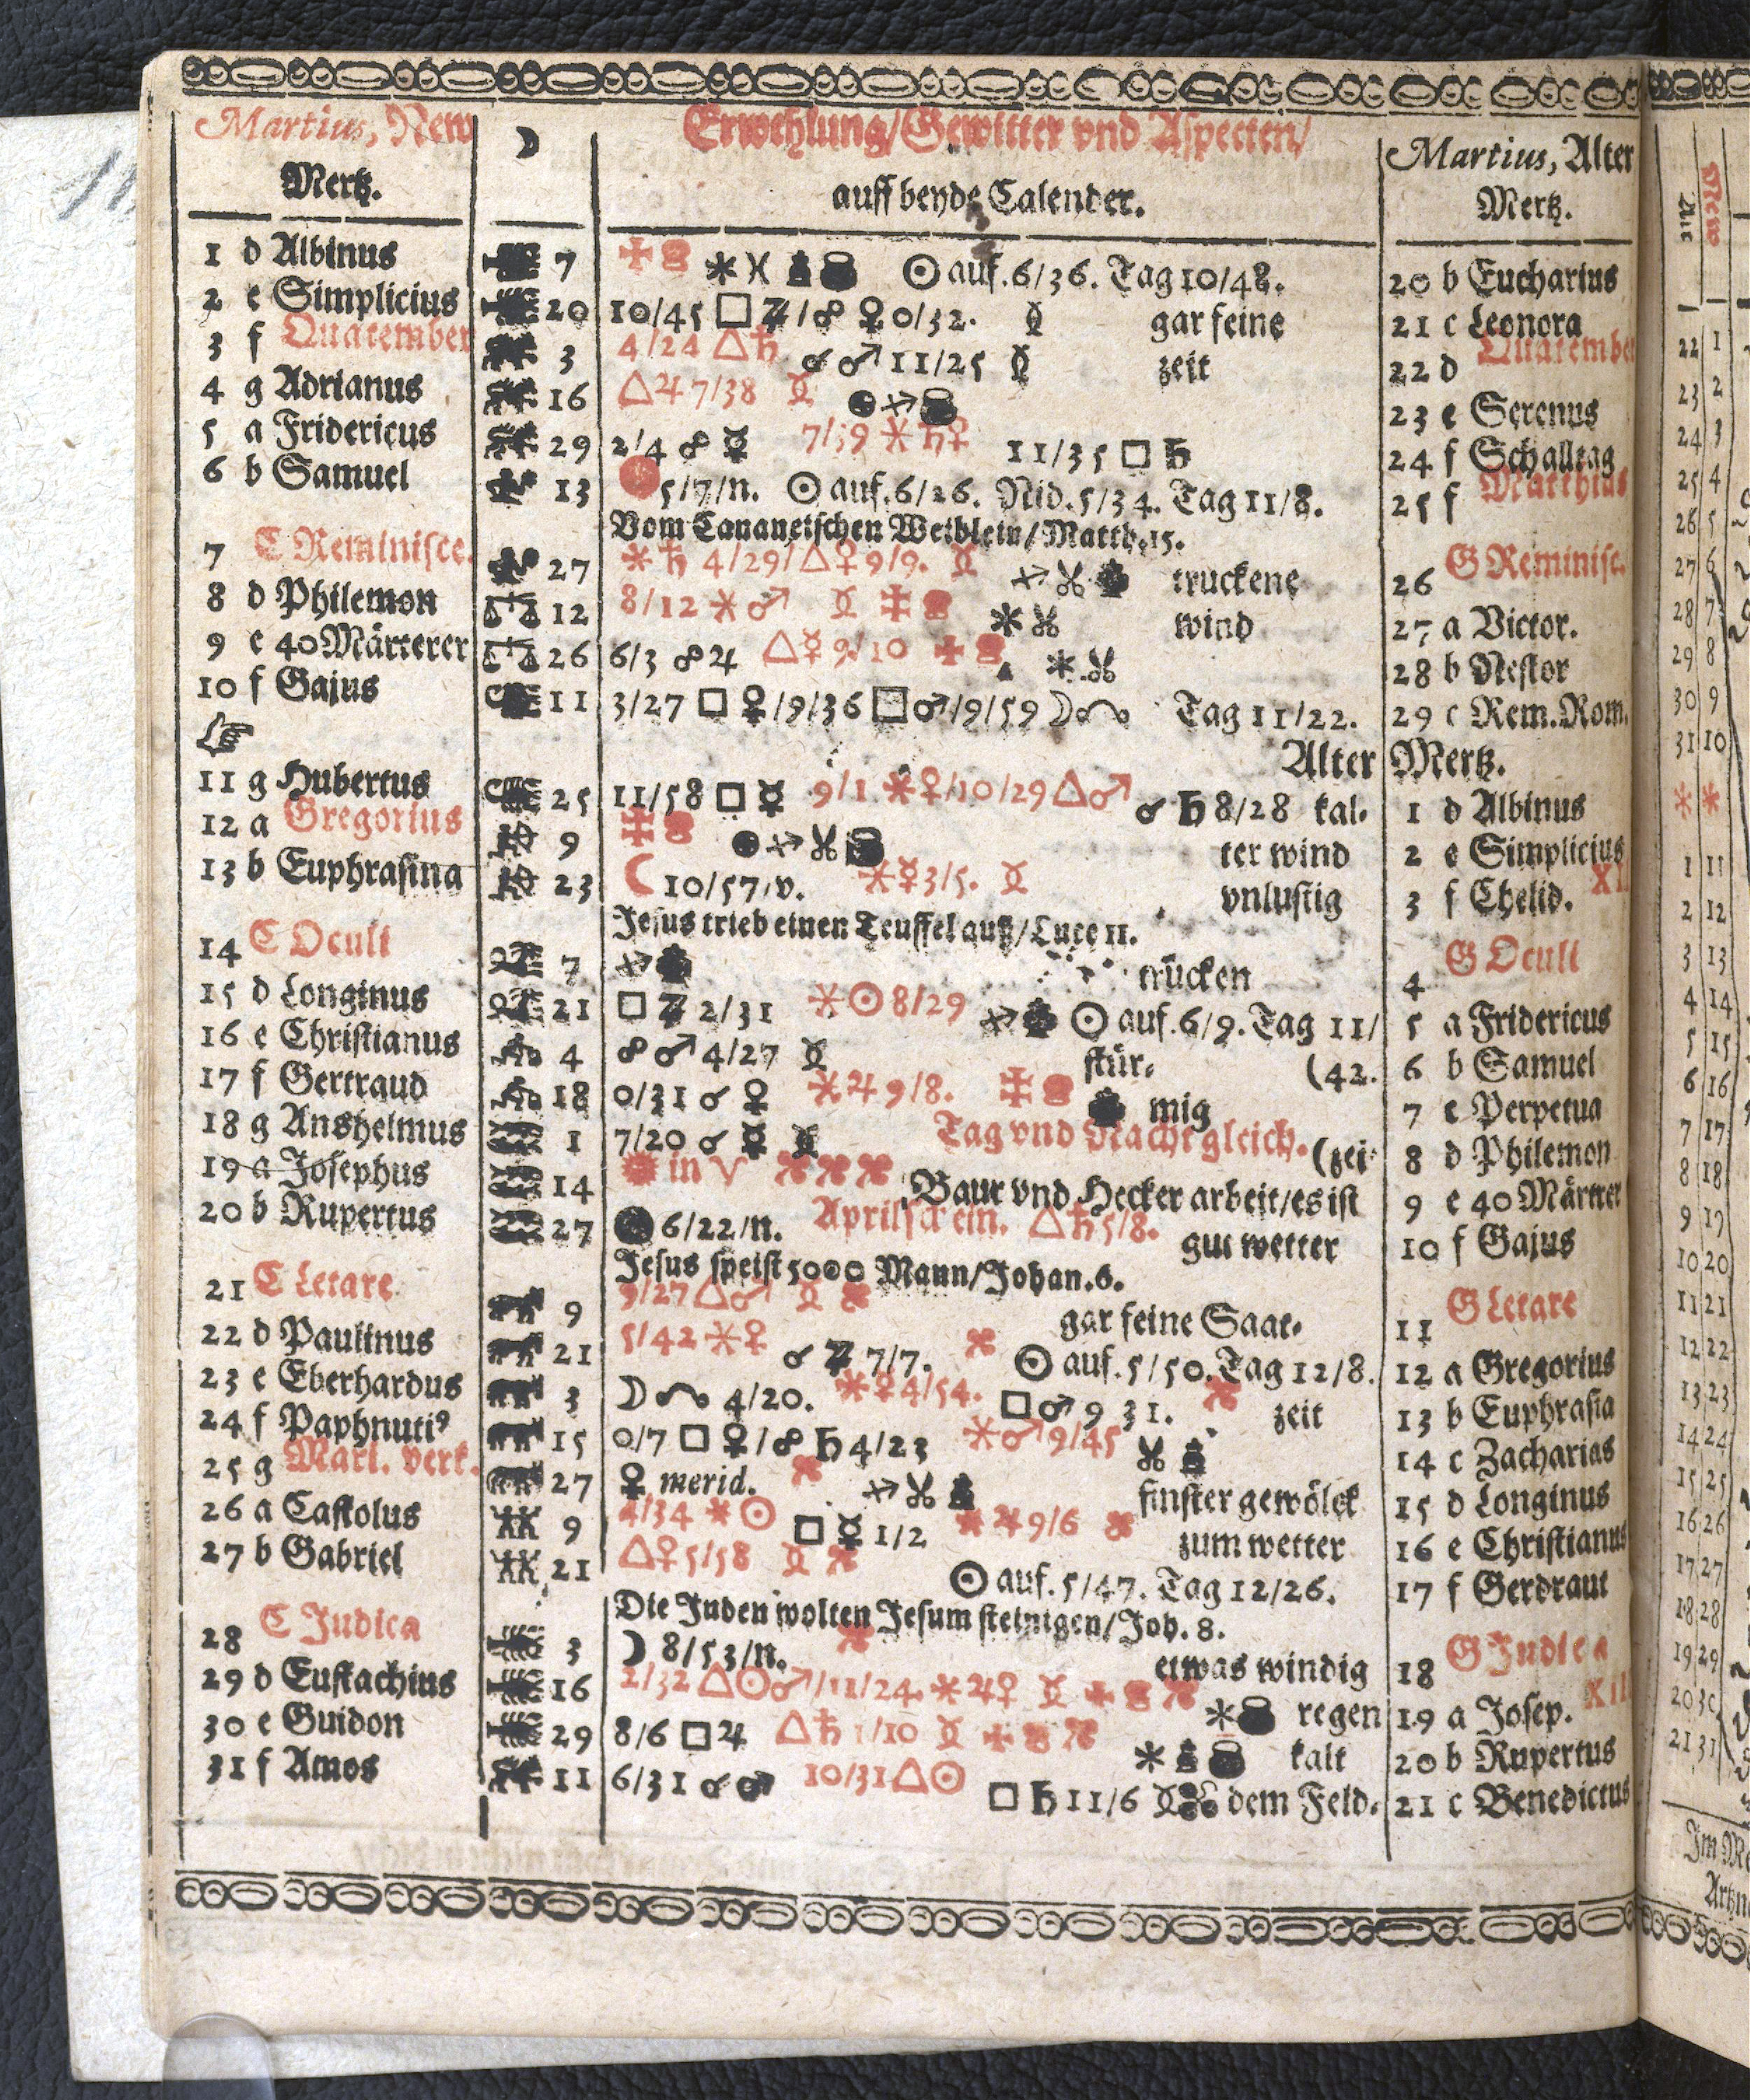 Martius, New
Mertz.
☽
Erwehlung/Gewitter vnd Aspecten/
auff beyde Calender.
Martius, Alter
Mertz.
1 d Albinus 7 ⚹ ♓ ☉ auf. 6/36. Tag 10/48. 20 b Eucharius
2 e Simplicius 20 10/45 □ ♃/☍ ♀ 0/32. gar feine 21 c Leonora
3 f Quatember 3 4/24 △ ♄ ☌ ♂ 11/25 zeit 22 d Quatembe
4 g Adrianus 16 △ ♃ 7/38 23 e Serenus
5 a Fridericus 29 2/4 ☍ ☿ 7/39 ⚹ ♄ ♀ 11/35 □ ♄ 24 f Schalltag
6 b Samuel 13 5/7/n. ☉ auf. 6/26. Nid. 5/34. Tag 11/8. 25 f Matthias
Vom Cananeischen Weiblein/Matth. 15.
7 C Reminisce. 27 ⚹ ♄ 4/29/△ ♀ 9/9. truckene 26 G Reminisc.
8 d Philemon 12 8/12 ⚹ ♂ wind 27 a Victor.
9 e 40 Märterer 26 6/3 ☍ ♃ △ ☿ 9/10 28 b Nestor
10 f Gajus 11 3/27 □ ♀/9/36 □ ♂/9/59 ☽ Tag 11/22. 29 c Rem. Rom.
☞ Alter Mertz.
11 g Hubertus 25 11/58 □ ☿ 9/1 ⚹ ♀/10/29 △ ♂ ☌ ♄ 8/28 kal- 1 d Albinus
12 a Gregorius 9 ter wind 2 e Simplicius
13 b Euphrasina 23 ☾ 10/57/v. ⚹ ☿ 3/5. vnlustig 3 f Chelid.
Jesus trieb einen Teuffel auß/Luce 11.
14 C Oculi 7 trücken 4 G Oculi
15 d Longinus 21 □ ♃ 2/31 ⚹ ☉ 8/29 ☉ auf. 6/9. Tag 11/ 5 a Fridericus
16 e Christianus 4 ☍ ♂ 4/27 stür- (42. 6 b Samuel
17 f Gertraud 18 0/31 ☌ ♀ ⚹ ♃ 9/8. mig 7 e Perpetua
18 g Anshelmus 1 7/20 ☌ ☿ Tag vnd Nacht gleich. (zei- 8 d Philemon
19 a Josephus 14 in ♈ Baur vnd Hecker arbeit/es ist 9 e 40 Märter
20 b Rupertus 27 6/22/n. Aprilschein. △ ♄ 5/8. gut wetter 10 f Gajus
Jesus speist 5000 Mann/Johan. 6.
21 C Letare 9 9/27 △ ♂ gar feine Saat- 11 G Letare
22 d Paulinus 21 5/42 ⚹ ♀ ☌ ♃ 7/7. ☉ auf. 5/50. Tag 12/8. 12 a Gregorius
23 e Eberhardus 3 ☽ 4/20. ⚹ ☿ 4/54. □ ♂ 9 31. zeit 13 b Euphrasia
24 f Paphnutiꝰ 15 0/7 □ ♀/☍ ♄ 4/23 ⚹ ♂ 9/45 14 c Zacharias
25 g Mari. verk. 27 ♀ merid. finster gewölck 15 d Longinus
26 a Castolus 9 4/34 ⚹ ☉ □ ☿ 1/2 ⚹ ♃ 9/6 zum wetter 16 e Christianus
27 b Gabriel 21 △ ♀ 5/58 ☉ auf. 5/47. Tag 12/26. 17 f Gerdraut
Die Juden wolten Jesum steinigen/Joh. 8.
28 C Judica 3 ☽ 8/53/n. etwas windig 18 G Judica
29 d Eustachius 16 2/32 △ ☉ ♂/11/24. ⚹ ♃ ♀ regen 19 a Josep.
30 e Guidon 29 8/6 □ ♃ △ ♄ 1/10 kalt 20 b Rupertus
31 f Amos 11 6/31 ☌ ♂ 10/31 △ ☉ □ ♄ 11/6 dem Feld- 21 c Benedictus
Alt New
22 1
23 2
24 3
25 4
26 5
27 6
28 7
29 8
30 9
31 10
1 11
2 12
3 13
4 14
5 15
6 16
7 17
8 18
9 19
10 20
11 21
12 22
13 23
14 24
15 25
16 26
17 27
18 28
19 29
20 30
21 31